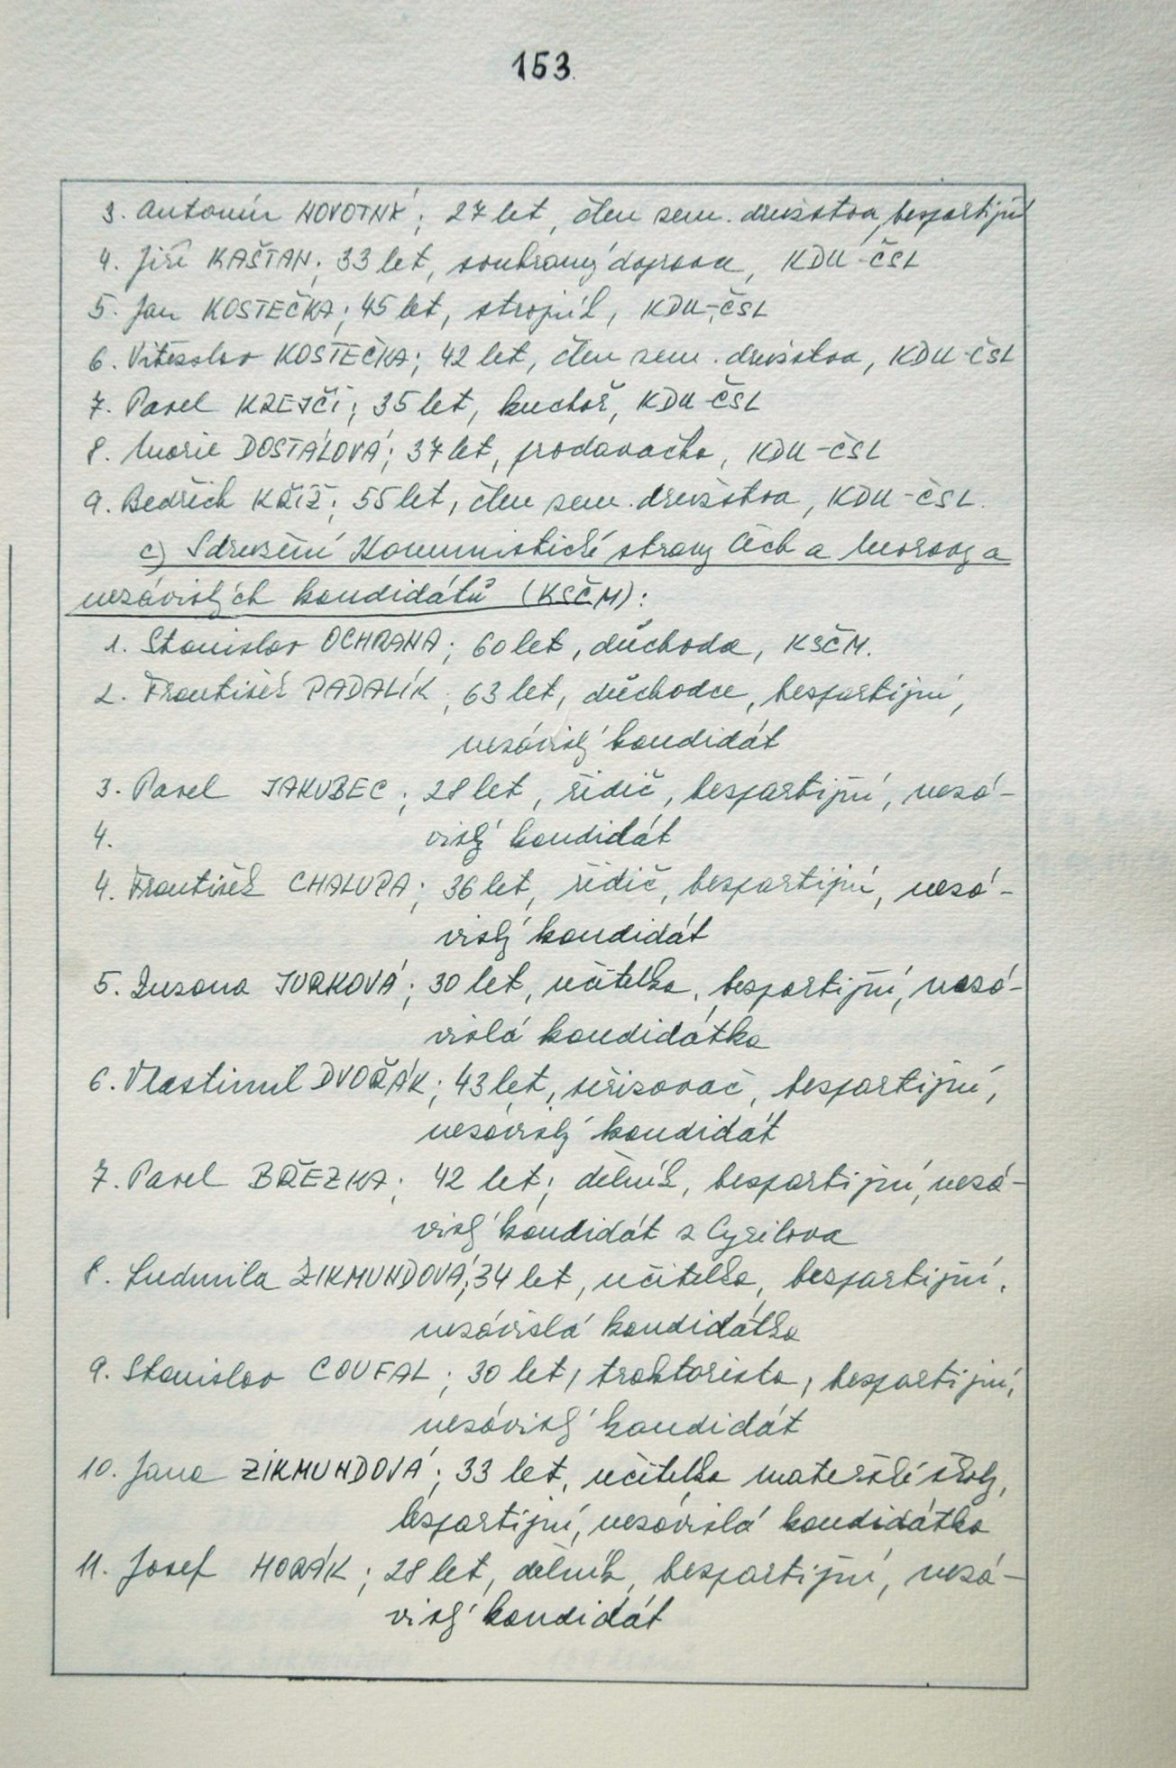 153
3. Antonín NOVOTNÝ; 27 let, člen zem. družstva, bezpartijní
4. Jiří KAŠTAN; 33 let, soukromý dopravce, KDU-ČSL
5. Jan KOSTEČKA; 45 let, strojník, KDU-ČSL
6. Vítězslav KOSTEČKA; 42 let, člen zem. družstva, KDU-ČSL
7. Pavel KREJČÍ; 35 let, kuchař, KDU-ČSL
8. Marie DOSTÁLOVÁ; 37 let, prodavačka, KDU-ČSL
9. Bedřich KŘÍŽ; 55 let, člen zem. družstva, KDU-ČSL.
c) Sdružení Komunistické strany Čech a Moravy a
nezávislých kandidátů (KSČM):
1. Stanislav OCHRANA; 60 let, důchodce, KSČM.
2. František PADALÍK; 63 let, důchodce, bezpartijní,
nezávislý kandidát
3. Pavel JAKUBEC; 28 let, řidič, bezpartijní, nezá-
4. vislý kandidát
4. František CHALUPA; 36 let, řidič, bezpartijní, nezá-
vislý kandidát
5. Zuzana JURKOVÁ; 30 let, učitelka, bezpartijní, nezá-
vislá kandidátka
6. Vlastimil DVOŘÁK; 43 let, seřizovač, bezpartijní,
nezávislý kandidát
7. Pavel BŘEZKA; 42 let; dělník, bezpartijní, nezá-
vislý kandidát z Cyrilova
8. Ludmila ZIKMUNDOVÁ; 34 let, učitelka, bezpartijní,
nezávislá kandidátka
9. Stanislav COUFAL; 30 let, traktorista, bezpartijní,
nezávislý kandidát
10. Jana ZIKMUNDOVÁ; 33 let, učitelka mateřské školy,
bezpartijní, nezávislá kandidátka
11. Josef HORÁK; 28 let, dělník, bezpartijní, nezá-
vislý kandidát